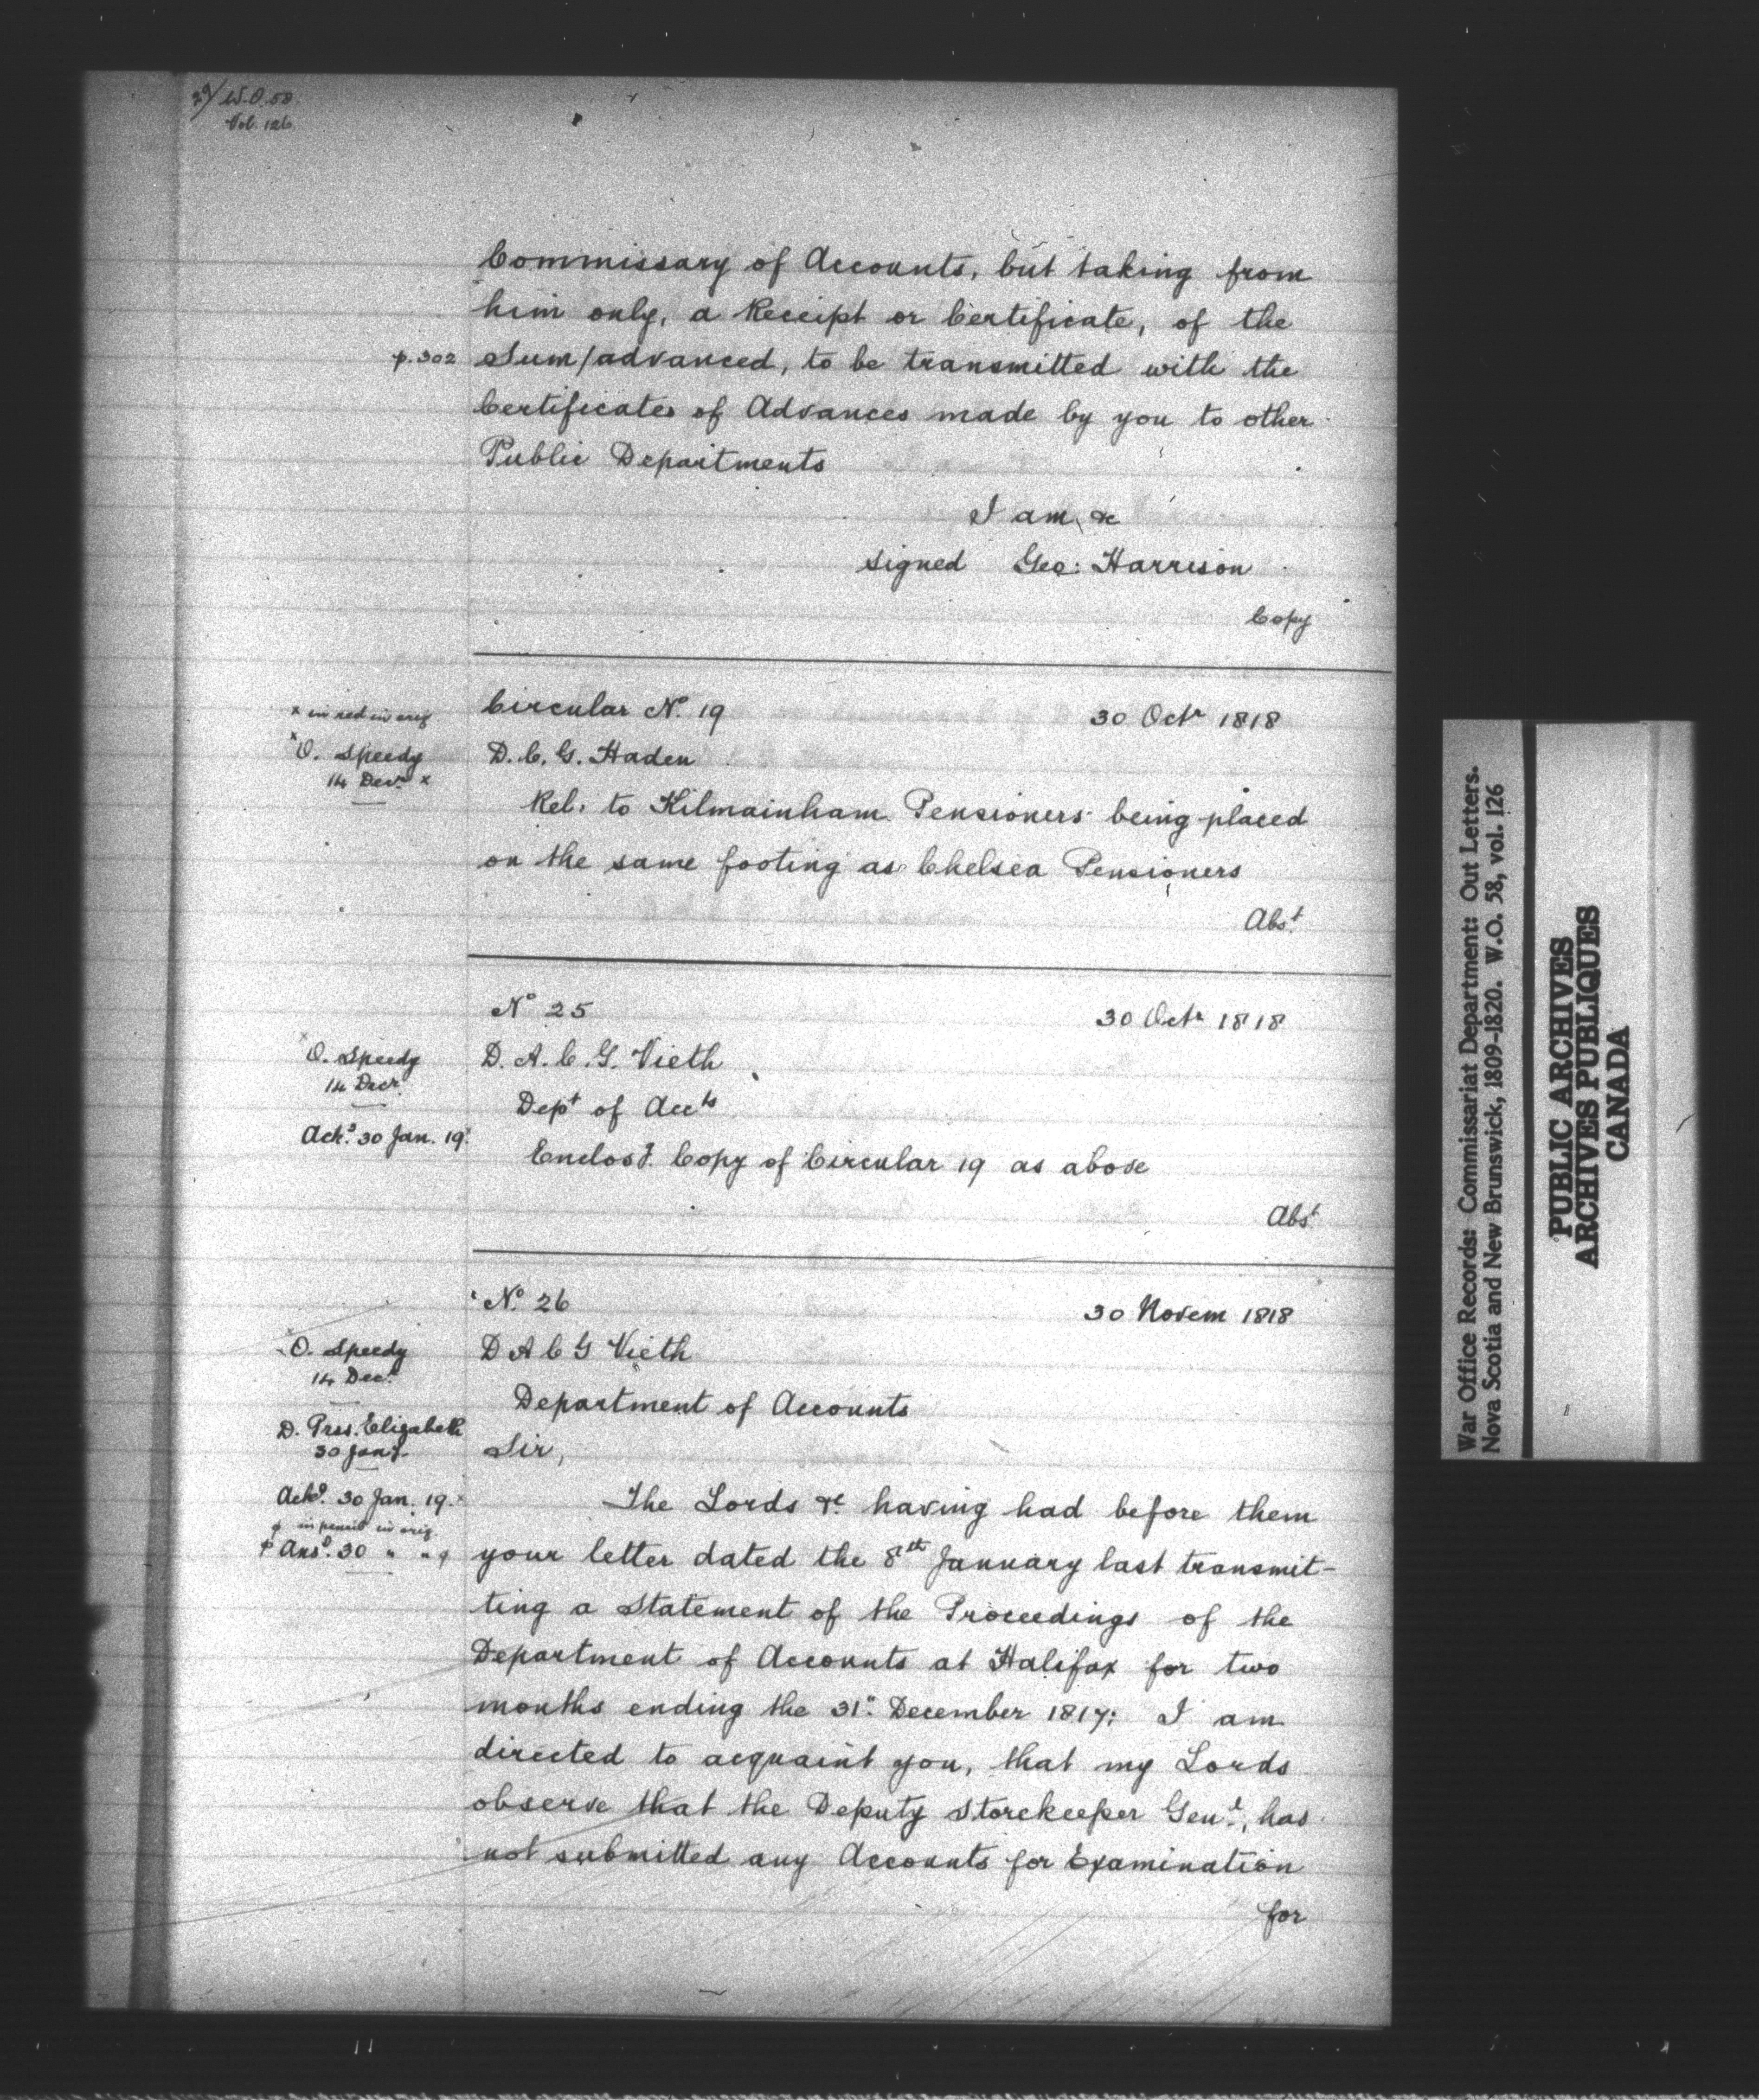 29/ W.O. 58
Vol. 126
Commissary of Accounts, but taking from
him only, a Receipt or Certificate, of the
p. 302
Sum/advanced, to be transmitted with the
Certificates of Advances made by you to other
Public Departments
I am, &c
signed Geo: Harrison
Copy
Circular No. 19 30 Octr 1818
x in red in orig
x O. Speedy
14 Decr x
D. C. G. Haden
Rel. to Kilmainham Pensioners being placed
on the same footing as Chelsea Pensioners
Abst
No 25 30 Octr 1818
O. Speedy
14 Decr
Ackd 30 Jan. 19
D. A. C. G. Vieth
Dept of Accts
Enclosg. Copy of Circular 19 as above
Abst
No. 26 30 Novem 1818
O. Speedy
14 Dec.
D. Prss. Elizabeth
30 Jany.
Ackd. 30 Jan. 19.
φ in pencil in orig.
φ Ansd. 30 " " φ
D A C G Vieth
Department of Accounts
Sir,
The Lords &c. having had before them
your letter dated the 8th January last transmit-
ting a Statement of the Proceedings of the
Department of Accounts at Halifax for two
months ending the 31st December 1817; I am
directed to acquaint you, that my Lords
observe that the Deputy Storekeeper Genl., has
not submitted any Accounts for Examination
for
War Office Records: Commissariat Department: Out Letters.
Nova Scotia and New Brunswick, 1809-1820. W.O. 58, vol. 126
PUBLIC ARCHIVES
ARCHIVES PUBLIQUES
CANADA